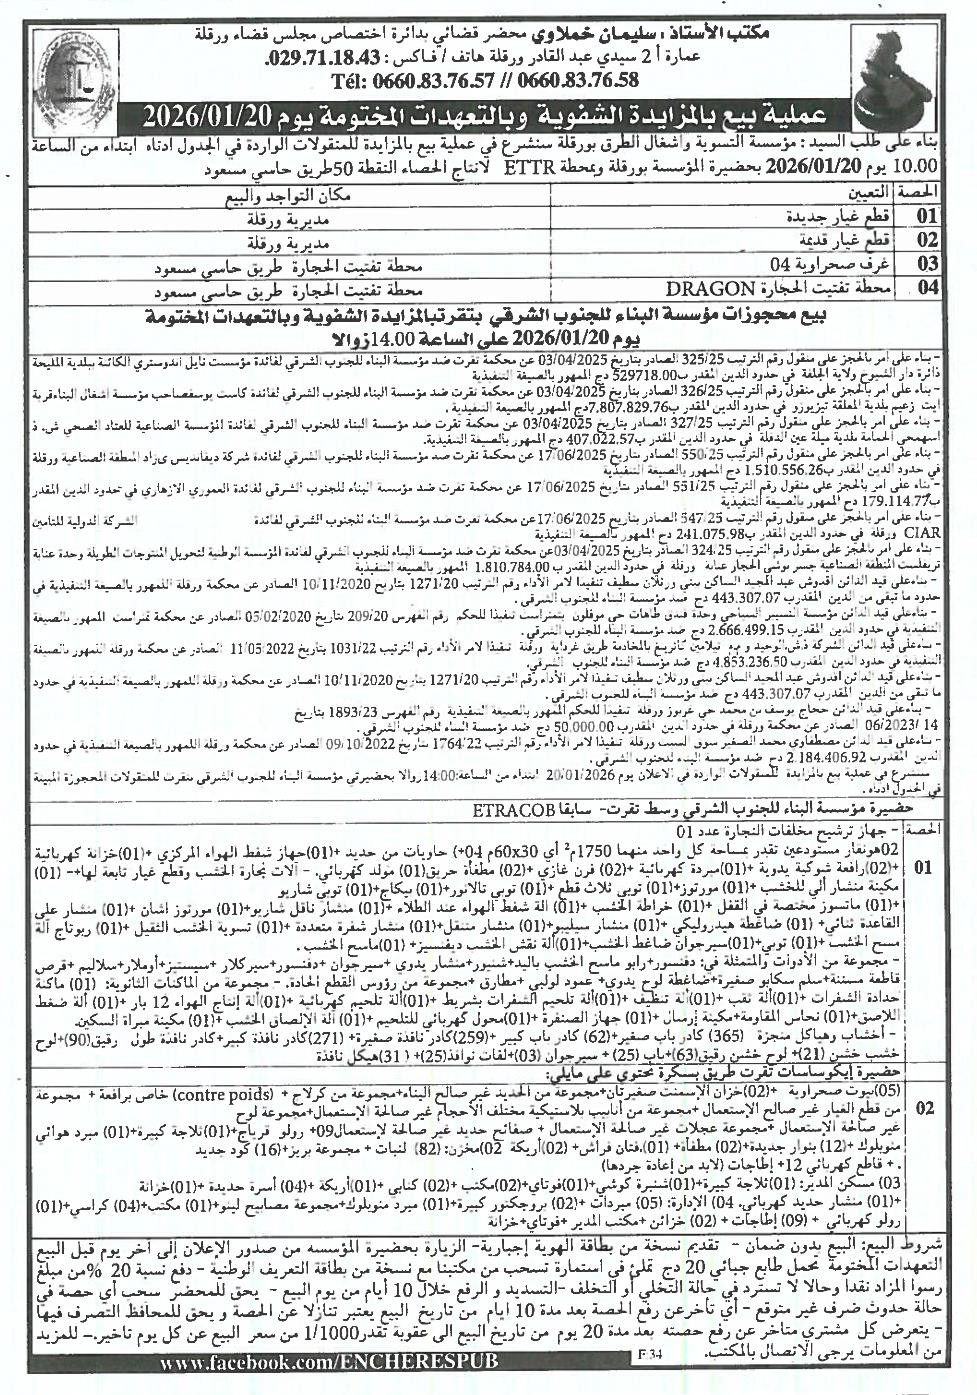 مكتب الأستاذ : سليمان خملاوي محضر قضائي بدائرة اختصاص مجلس قضاء ورقلة
عمارة أ 2 سيدي عبد القادر ورقلة هاتف / فاكس : 029.71.18.43.
Tél: 0660.83.76.57 // 0660.83.76.58
عملية بيع بالمزايدة الشفوية وبالتعهدات المختومة يوم 2026/01/20
بناء على طلب السيد : مؤسسة التسوية واشغال الطرق بورقلة سنشرع في عملية بيع بالمزايدة للمنقولات الواردة في الجدول ادناه ابتداء من الساعة
10.00 يوم 2026/01/20 بحضيرة المؤسسة بورقلة وبمحطة ETTR لانتاج الحصاء النقطة 50طريق حاسي مسعود
الحصة التعيين مكان التواجد والبيع
01 قطع غيار جديدة مديرية ورقلة
02 قطع غيار قديمة مديرية ورقلة
03 غرف صحراوية 04 محطة تفتيت الحجارة طريق حاسي مسعود
04 محطة تفتيت الحجارة DRAGON محطة تفتيت الحجارة طريق حاسي مسعود
بيع محجوزات مؤسسة البناء للجنوب الشرقي بتقرتبالمزايدة الشفوية وبالتعهدات المختومة
يوم 2026/01/20 على الساعة 14.00زوالا
- بناء على أمر بالحجز على منقول رقم الترتيب 325/25 الصادر بتاريخ 03/04/2025 عن محكمة تقرت ضد مؤسسة البناء للجنوب الشرقي لفائدة مؤسست نايل أندوستري الكائنة ببلدية المليحة
دائرة دار الشيوخ ولاية الجلفة في حدود الدين المقدر ب529718.00 دج الممهور بالصيغة التنفيذية
- بناء على أمر بالحجز على منقول رقم الترتيب 326/25 الصادر بتاريخ 03/04/2025 عن محكمة تقرت ضد مؤسسة البناء للجنوب الشرقي لفائدة كاست يوسفصاحب مؤسسة اشغال البناءقرية
ايت زعيم بلدية المعلقة تيزيوزو في حدود الدين المقدر ب7,807.829.76دج الممهور بالصيغة التنفيذية .
- بناء على أمر بالحجز على منقول رقم الترتيب 327/25 الصادر بتاريخ 03/04/2025 عن محكمة تقرت ضد مؤسسة البناء للجنوب الشرقي لفائدة المؤسسة الصناعية للعتاد الصحي ش. ذ
الحمامة بلدية ميلة عين الدفلة في حدود الدين المقدر ب407.022.57 دج الممهور بالصيغة التنفيذية.
- بناء على أمر بالحجز على منقول رقم الترتيب 550/25 الصادر بتاريخ 17/06/2025 عن محكمة تقرت ضد مؤسسة البناء للجنوب الشرقي لفائدة شركة ديفانديس المنطقة الصناعية ورقلة
في حدود الدين المقدر ب1.510.556.26 دج الممهور بالصيغة التنفيذية
- بناء على أمر بالحجز على منقول رقم الترتيب 551/25 الصادر بتاريخ 17/06/2025 عن محكمة تقرت ضد مؤسسة البناء للجنوب الشرقي لفائدة العموري الازهاري في حدود الدين المقدر
ب179.114.77 دج الممهور بالصيغة التنفيذية
- بناء على أمر بالحجز على منقول رقم الترتيب 547/25 الصادر بتاريخ 17/06/2025عن محكمة تقرت ضد مؤسسة البناء للجنوب الشرقي لفائدة الشركة الدولية للتامين
CIAR ورقلة في حدود الدين المقدر ب241.075.98 دج الممهور بالصيغة التنفيذية
- بناء على أمر بالحجز على منقول رقم الترتيب 324/25 الصادر بتاريخ 03/04/2025عن محكمة تقرت ضد مؤسسة البناء للجنوب الشرقي لفائدة المؤسسة الوطنية لتحويل المنتوجات الطويلة وحدة عنابة
تريفلست المنطقة الصناعية جسر بوشي الحجار عنابة ورقلة في حدود الدين المقدر ب 1.810.784.00 الممهور بالصيغة التنفيذية
- بناءعلى قيد الدائن اقدوش عبد المجيد الساكن ببني ورثلان سطيف تنفيذا لامر الأداء رقم الترتيب 1271/20 بتاريخ 10/11/2020 الصادر عن محكمة ورقلة الممهور بالصيغة التنفيذية في
حدود ما تبقى من الدين المقدرب 443.307.07 دج ضد مؤسسة البناء للجنوب الشرقي .
- بناءعلى قيد الدائن مؤسسة التسيير السياحي وحدة فندق طاهات حي موفلون بتمنراست تنفيذا للحكم رقم الفهرس 209/20 بتاريخ 05/02/2020 الصادر عن محكمة تمنراست الممهور بالصيغة
التنفيذية في حدود الدين المقدرب 2.666.499.15 دج ضد مؤسسة البناء للجنوب الشرقي .
- بناءعلى قيد الدائن الشركة ورقلة تنفيذا لامر الأداء رقم الترتيب 1031/22 بتاريخ 11/05/2022 الصادر عن محكمة ورقلة الممهور بالصيغة
التنفيذية في حدود الدين المقدرب 4.853.236.50 دج ضد مؤسسة البناء للجنوب الشرقي.
- بناءعلى قيد الدائن اقدوش عبد المجيد الساكن ببني ورثلان سطيف تنفيذا لامر الأداء رقم الترتيب 1271/20 بتاريخ 10/11/2020 الصادر عن محكمة ورقلة الممهور بالصيغة التنفيذية في حدود
ما تبقى من الدين المقدرب 443.307.07 دج ضد مؤسسة البناء للجنوب الشرقي .
- بناءعلى قيد الدائن حجاج يوسف بن محمد حي غربوز ورقلة تنفيذا للحكم الممهور بالصيغة التنفيذية رقم الفهرس 1893/23 بتاريخ
14 /06/2023 الصادر عن محكمة ورقلة في حدود الدين المقدرب 50.000.00 دج ضد مؤسسة البناء للجنوب الشرقي .
- بناءعلى قيد الدائن مصطفاوي محمد الصغير سوق السبت ورقلة تنفيذا لامر الأداء رقم الترتيب 1764/22 بتاريخ 09/10/2022 الصادر عن محكمة ورقلة الممهور بالصيغة التنفيذية في حدود
الدين المقدرب 2.184.406.92 دج ضد مؤسسة البناء للجنوب الشرقي .
سنشرع في عملية بيع بالمزايدة للمنقولات الواردة في الاعلان يوم 20/01/2026 ابتداء من الساعة:14:00زوالا بحضيرتي مؤسسة البناء للجنوب الشرقي بتقرت للمنقولات المحجوزة المبينة
في الجدول ادناه .
حضيرة مؤسسة البناء للجنوب الشرقي وسط تقرت- سابقا ETRACOB
الحصة - جهاز ترشيح مخلفات النجارة عدد 01
02هونغار مستودعين تقدر بمساحة كل واحد منهما 1750م² أي 60x30م 04+) حاويات من حديد +(01)جهاز شفط الهواء المركزي +(01)خزانة كهربائية
01 +(02)رافعة شوكية يدوية +(01)مبردة كهربائية +(02) فرن غازي +(02) مطفأة حريق(01) مولد كهربائي. - آلات نجارة الخشب وقطع غيار تابعة لها+- (01)
مكينة منشار ألي للخشب +(01) مورتوز+(01) توبي ثلاث قطع +(01) توبي تالانور+(01) بيكاج+(01) توبي شاريو
+(01) ماتسوز مختصة في القفل +(01) خراطة الخشب +(01) الة شفط الهواء عند الطلاء +(01) منشار ناقل شاريو+(01) مورتوز أشان +(01) منشار على
القاعدة ثنائي+ (01) ضاغطة هيدروليكي +(01) منشار سيليبو+(01) منشار متنقل+(01) منشار شفرة متعددة +(01) تسوية الخشب الثقيل +(01) ربوتاج آلة
مسح الخشب +(01) توبي+(01)سيرجوان ضاغط الخشب+(01)ألة نقش الخشب ديفنسيز+(01)ماسح الخشب .
- مجموعة من الأدوات والمتمثلة في: دفنسور+رابو ماسح الخشب باليد+شنيور+منشار يدوي +سيرجوان +دفنسور+سيركلار +سيستيز+أوملار+سلاليم +قرص
قاطعة مسننة+سلم سكابو صغيرة+ضاغطة لوح يدوي+ عمود لولبي +مطارق +مجموعة من رؤوس القطع الحادة. - مجموعة من الماكنات الثانوية: (01) ماكنة
حدادة الشفرات +(01)ألة ثقب +(01)ألة تنظيف +(01)ألة تلحيم الشفرات بشريط +(01)ألة تلحيم كهربائية +(01)ألة إنتاج الهواء 12 بار +(01) ألة ضغط
اللاصق+(01) نحاس المقاومة+مكينة إرسال +(01) جهاز الصنفرة +(01)محول كهربائي للتلحيم +(01) ألة الإلصاق الخشب +(01) مكينة مبراة السكين.
- أخشاب وهياكل منجزة (365) كادر باب صغير+(62) كادر باب كبير +(259)كادر نافذة صغيرة+ (271)كادر نافذة كبير+كادر نافذة طول رقيق(90)+لوح
خشب خشن (21)+ لوح خشن رقيق(63)+باب (25)+ سيرجوان (03)+لفات نوافذ(25)+ (31)هيكل نافذة
حضيرة إيكوساسات تقرت طريق بسكرة تحتوي على مايلي:
(05)بيوت صحراوية +(02)خزان الإسمنت صغيرتان+مجموعة من الحديد غير صالح البناء+مجموعة من كرلاج + (contre poids) خاص برافعة + مجموعة
02 من قطع الغيار غير صالح الإستعمال +مجموعة من أنابيب بلاستيكية مختلف الأحجام غير صالحة الإستعمال+مجموعة لوح
غير صالحة الإستعمال +مجموعة عجلات غير صالحة الإستعمال + صفائح حديد غير صالحة لإستعمال09+ رولو قرباج+(01)ثلاجة كبيرة+(01) مبرد هوائي
منوبلوك +(12) بنوار جديدة+(02) مطفأة+ (01).فتان فراش +(02)أريكة 02مخزن: (82) لنبات + مجموعة بريز+(16) كود جديد
. + قاطع كهربائي 12+ إطاجات (لابد من إعادة جردها)
03 مسكن المدير: (01)ثلاجة كبيرة+(01)شنيرة كوشي+(01)فوتاي+(02)مكتب +(02) كنابي +(01)أريكة +(04) أسرة حديدة +(01)خزانة
+(01) منشار حديد كهربائي. 04 الإدارة: (05) مبردات +(02) بروجكتور كبيرة+(01) مبرد منوبلوك+مجموعة مصابيح لينو+(01) مكتب+(04) كراسي+(01)
رولو كهربائي + (09) إطاجات + (02) خزائن +مكتب المدير +فوتاي+خزانة
شروط البيع: البيع بدون ضمان - تقديم نسخة من بطاقة الهوية إجبارية- الزيارة بحضيرة المؤسسه من صدور الإعلان إلى أخر يوم قبل البيع
التعهدات المختومة تحمل طابع جبائي 20 دج تملئ في استمارة تسحب من مكتبنا مع نسخة من بطاقة التعريف الوطنية - دفع نسبة 20 %من مبلغ
رسوا المزاد نقدا وحالا لا تسترد في حالة التخلي أو التخلف -التسديد و الرفع خلال 10 أيام من يوم البيع - يحق للمحضر سحب أي حصة في
حالة حدوث ضرف غير متوقع - أي تأخرعن رفع الحصة بعد مدة 10 ايام من تاريخ البيع يعتبر تنازلا عن الحصة و يحق للمحافظ التصرف فيها
- يتعرض كل مشتري متاخر عن رفع حصته بعد مدة 20 يوم من تاريخ البيع الى عقوبة تقدر1/1000 من سعر البيع عن كل يوم تاخير.- للمزيد
من المعلومات يرجى الاتصال بالمكتب.
F 34
www.facebook.com/ENCHERESPUB